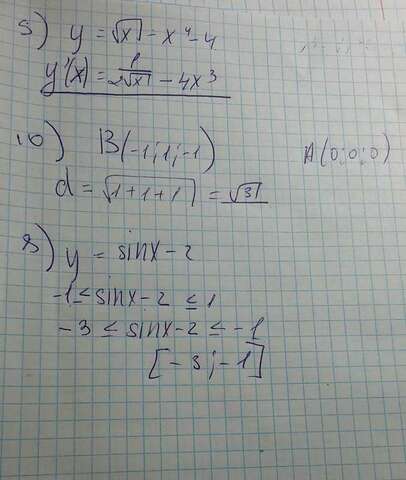 5) y = √x - x⁴ - 4
y'(x) = 1/2√x - 4x³
10) B(-1; 1; -1) A(0; 0; 0)
d = √1+1+1 = √3
8) y = sinx - 2
-1 ≤ sinx - 2 ≤ 1
-3 ≤ sinx - 2 ≤ -1
[-3; -1]